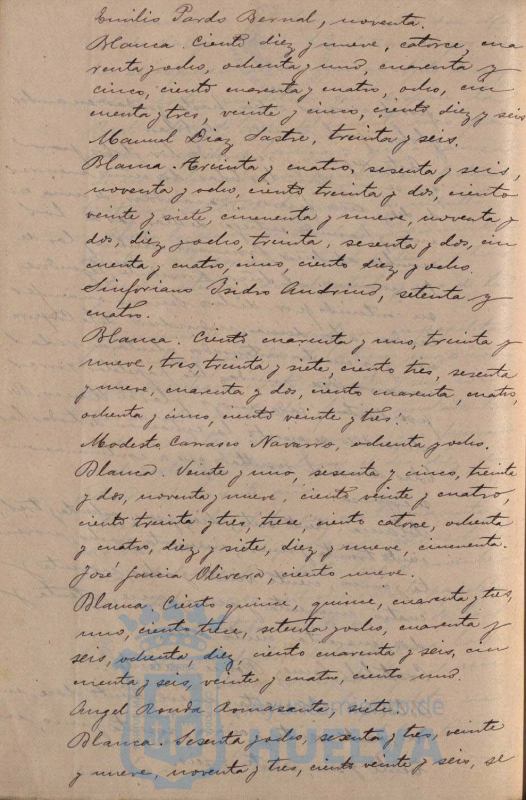 Emilio Pardo Bernal, noventa.
Blanca. Ciento diez y nueve, catorce, cua
renta y ocho, ochenta y uno, cuarenta y
cinco, ciento cuarenta y cuatro, ocho, cin
cuenta y tres, veinte y cinco, ciento diez y seis
Manuel Diaz Sastre, treinta y seis.
Blanca. Treinta y cuatro, sesenta y seis,
noventa y ocho, ciento treinta y dos, ciento
veinte y siete, cincuenta y nueve, noventa y
dos, diez y ocho, treinta, sesenta y dos, cin
cuenta y cuatro, cinco, ciento diez y ocho.
Sinforiano Isidro Andrino, setenta y
cuatro.
Blanca. Ciento cuarenta y uno, treinta y
nueve, tres, treinta y siete, ciento tres, sesenta
y nueve, cuarenta y dos, ciento cuarenta, cuatro,
ochenta y cinco, ciento veinte y tres.
Modesto Carrasco Navarro, ochenta y ocho.
Blanca. Veinte y uno, sesenta y cinco, treinta
y dos, noventa y nueve, ciento veinte y cuatro,
ciento treinta y tres, trece, ciento catorce, ochenta
y cuatro, diez y siete, diez y nueve, cincuenta.
José García Olivera, ciento nueve.
Blanca. Ciento quince, quince, cuarenta y tres,
uno, ciento trece, setenta y ocho, cuarenta y
seis, ochenta, diez, ciento cuarenta y seis, cin
cuenta y seis, veinte y cuatro, ciento uno.
Angel Ronda Romasanta, siete.
Blanca. Sesenta y ocho, sesenta y tres, veinte
y nueve, noventa y tres, ciento veinte y seis, se
HUELVA